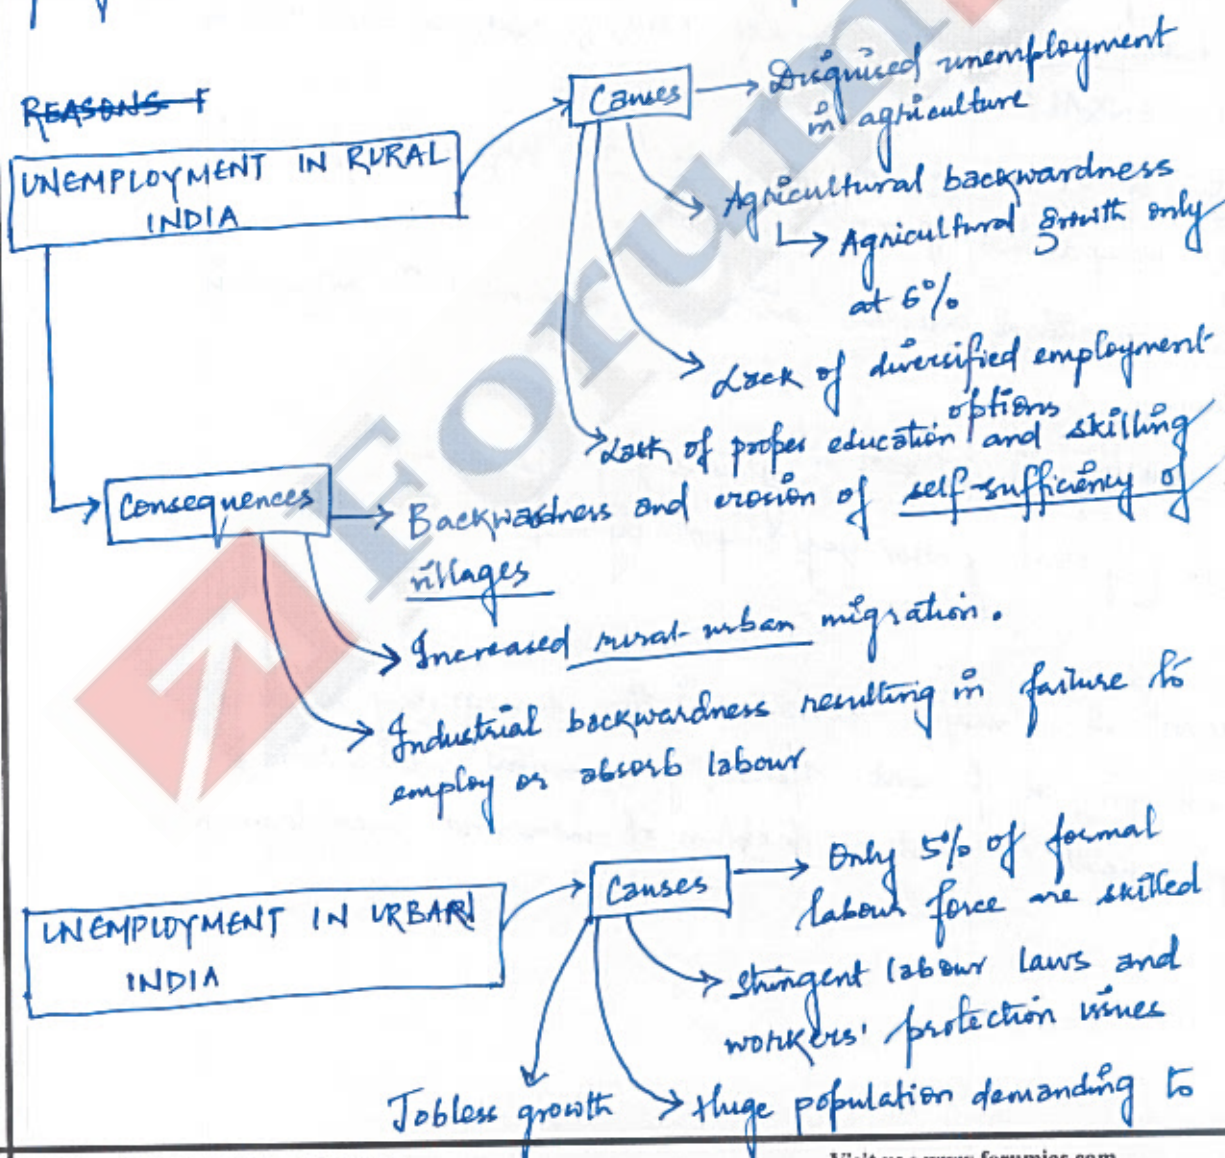 REASONS F
UNEMPLOYMENT IN RURAL
INDIA
Causes
Disguised unemployment
in agriculture
Agricultural backwardness
Agricultural growth only
at 6%
Lack of diversified employment
options
Lack of proper education and skilling
Consequences
Backwardness and erosion of self-sufficiency of
villages
Increased rural-urban migration.
Industrial backwardness resulting in failure to
employ or absorb labour
UNEMPLOYMENT IN URBAN
INDIA
Causes
Only 5% of formal
labour force are skilled
Stringent labour laws and
workers' protection issues
Huge population demanding to
Jobless growth
Forum